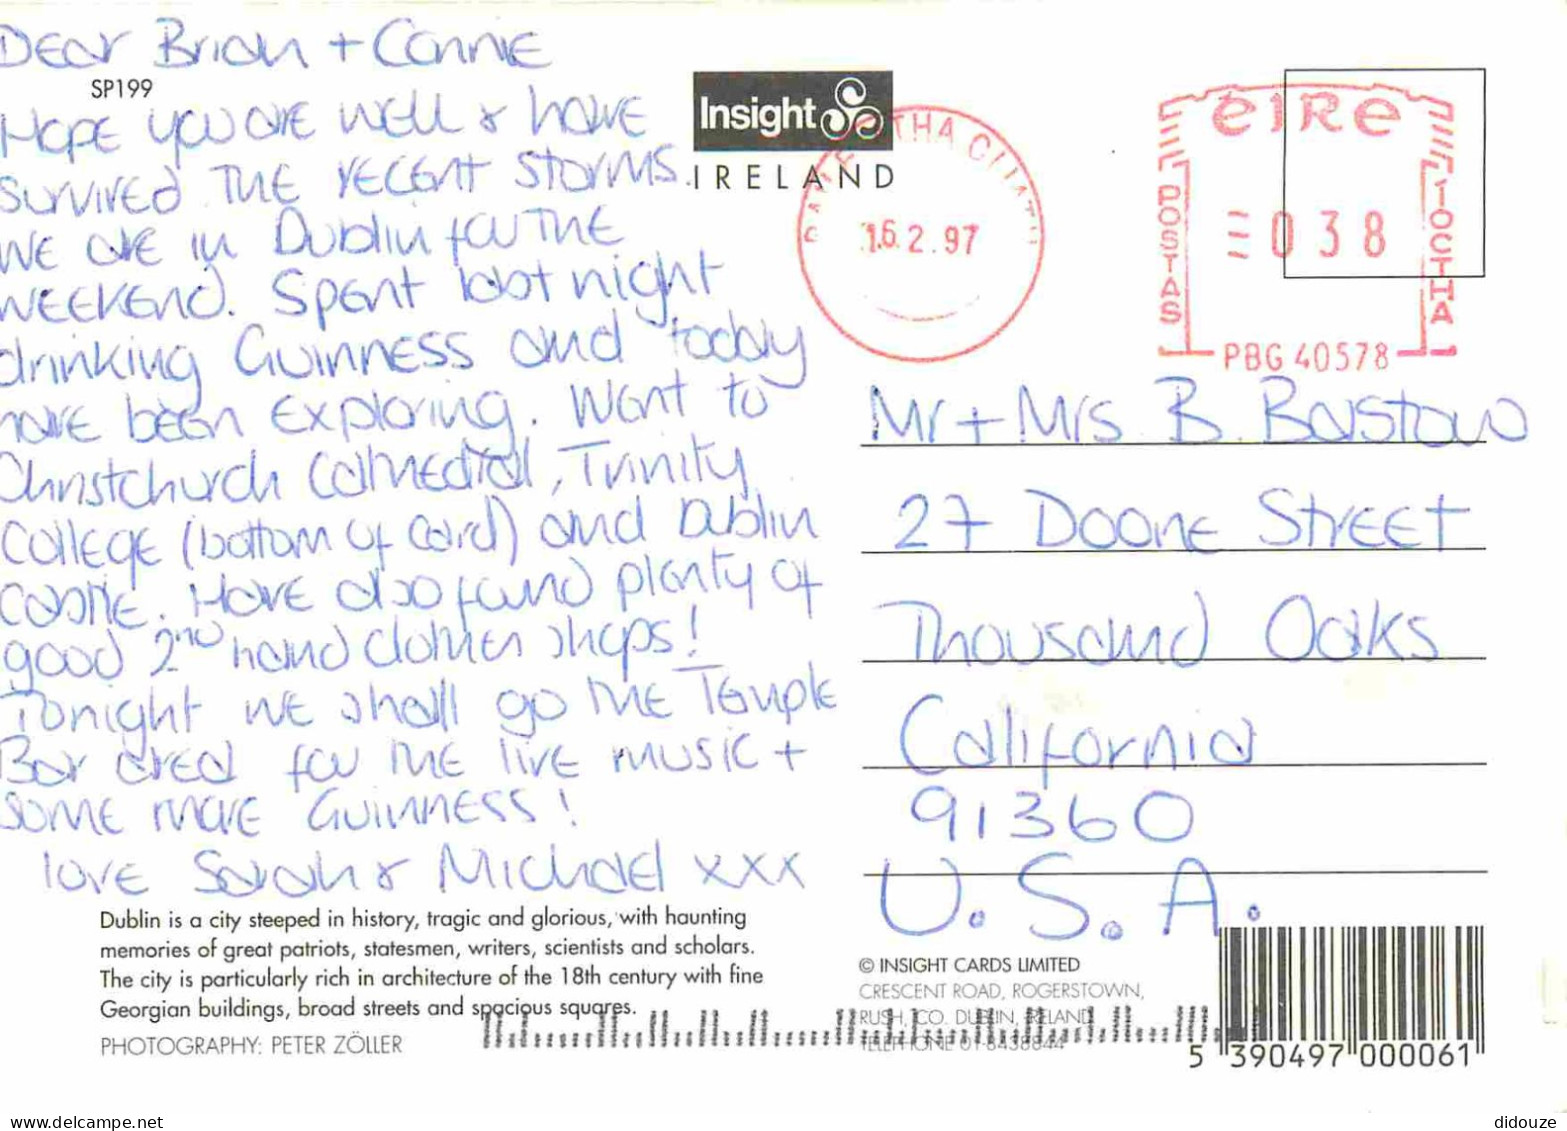 Dear Brian + Connie
SP199
Hope you are well & have
survived the recent storms.
We are in Dublin for the
weekend. Spent last night
drinking Guinness and today
have been exploring. Went to
Christchurch Cathedral, Trinity
College (bottom of card) and Dublin
Castle. Have also found plenty of
good 2nd hand clothes shops!
Tonight we shall go the Temple
Bar area for the live music +
some more Guinness!
love Sarah & Michael xxx
Dublin is a city steeped in history, tragic and glorious, with haunting
memories of great patriots, statesmen, writers, scientists and scholars.
The city is particularly rich in architecture of the 18th century with fine
Georgian buildings, broad streets and spacious squares.
PHOTOGRAPHY: PETER ZÖLLER
Insight
IRELAND
ATHA CLIATH
16.2.97
éIRe
POSTAS
038
IOCTHA
PBG 40578
Mr + Mrs B. Barstow
27 Doone Street
Thousand Oaks
California
91360
U.S.A.
© INSIGHT CARDS LIMITED
CRESCENT ROAD, ROGERSTOWN,
RUSH, CO. DUBLIN, IRELAND
TELEPHONE 01-8438844
5 390497 000061
delcampe.net
didouze